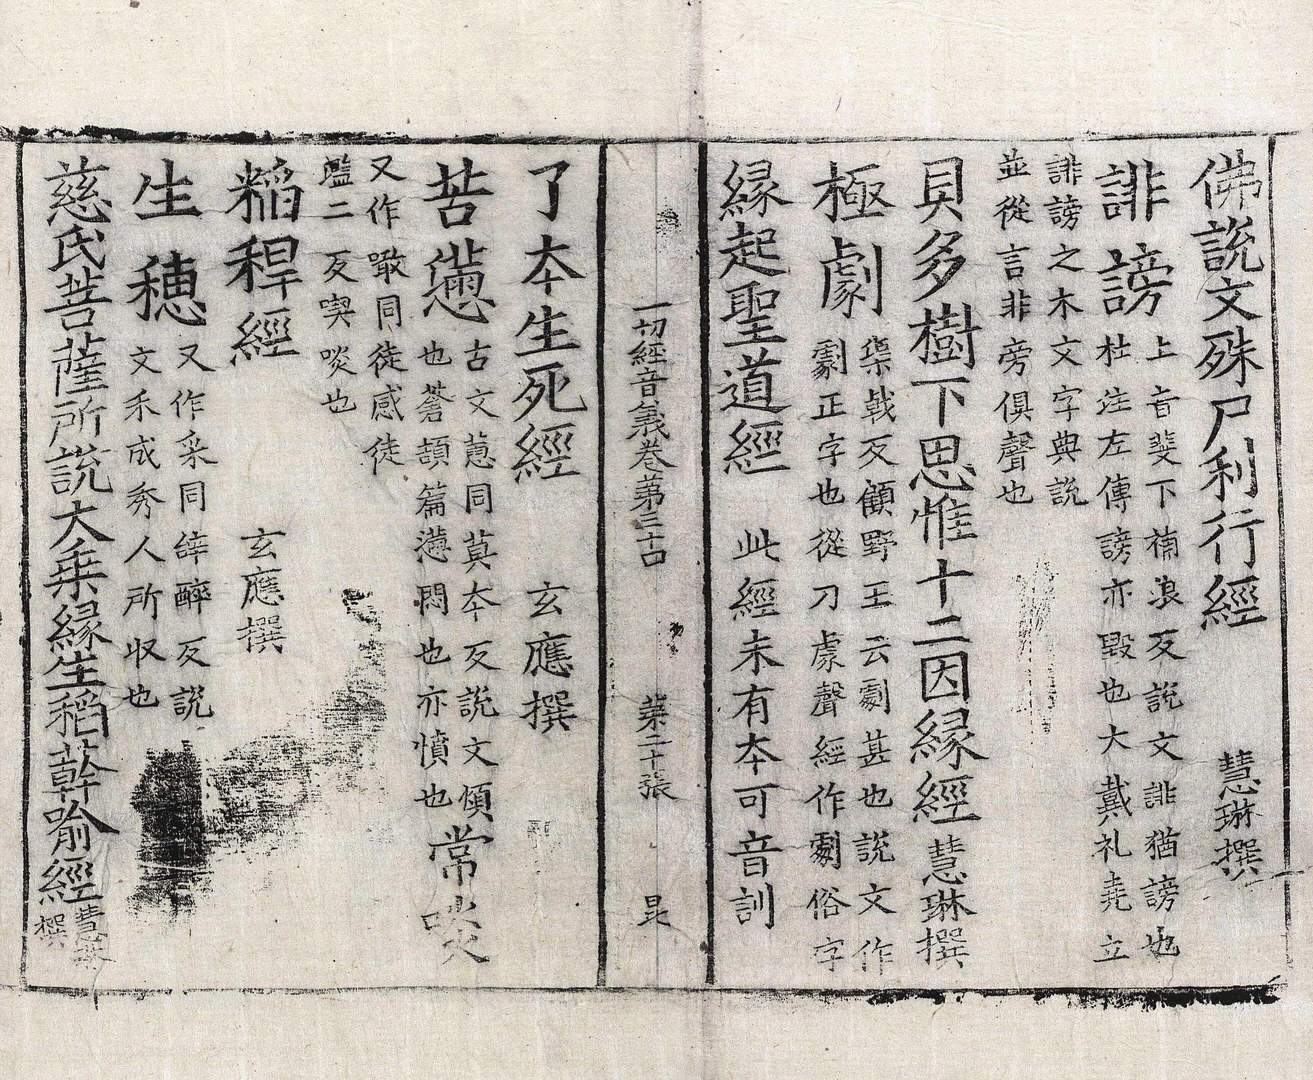 佛説文殊尸利行經 慧琳撰
誹謗 上音斐下補浪反説文誹猶謗也
杜注左傳謗亦毀也大戴礼堯立
誹謗之木文字典説
並從言非旁俱聲也
貝多樹下思惟十二因縁經 慧琳撰
極劇 渠戟反顧野王云劇甚也説文作
劇正字也從刀豦聲經作劇俗字
縁起聖道經 此經未有本可音訓
一切經音義卷第三十四 第二十張 昆
了本生死經 玄應撰
苦懣 古文懑同莫本反説文煩
也蒼頡篇懣悶也亦憤也
常啖
又作噉同徒感徒
濫二反喫啖也
稻稈經 玄應撰
生穗 又作采同辝醉反説
文禾成秀人所収也
慈氏菩薩所説大乗縁生稻𦼮喻經 慧琳撰